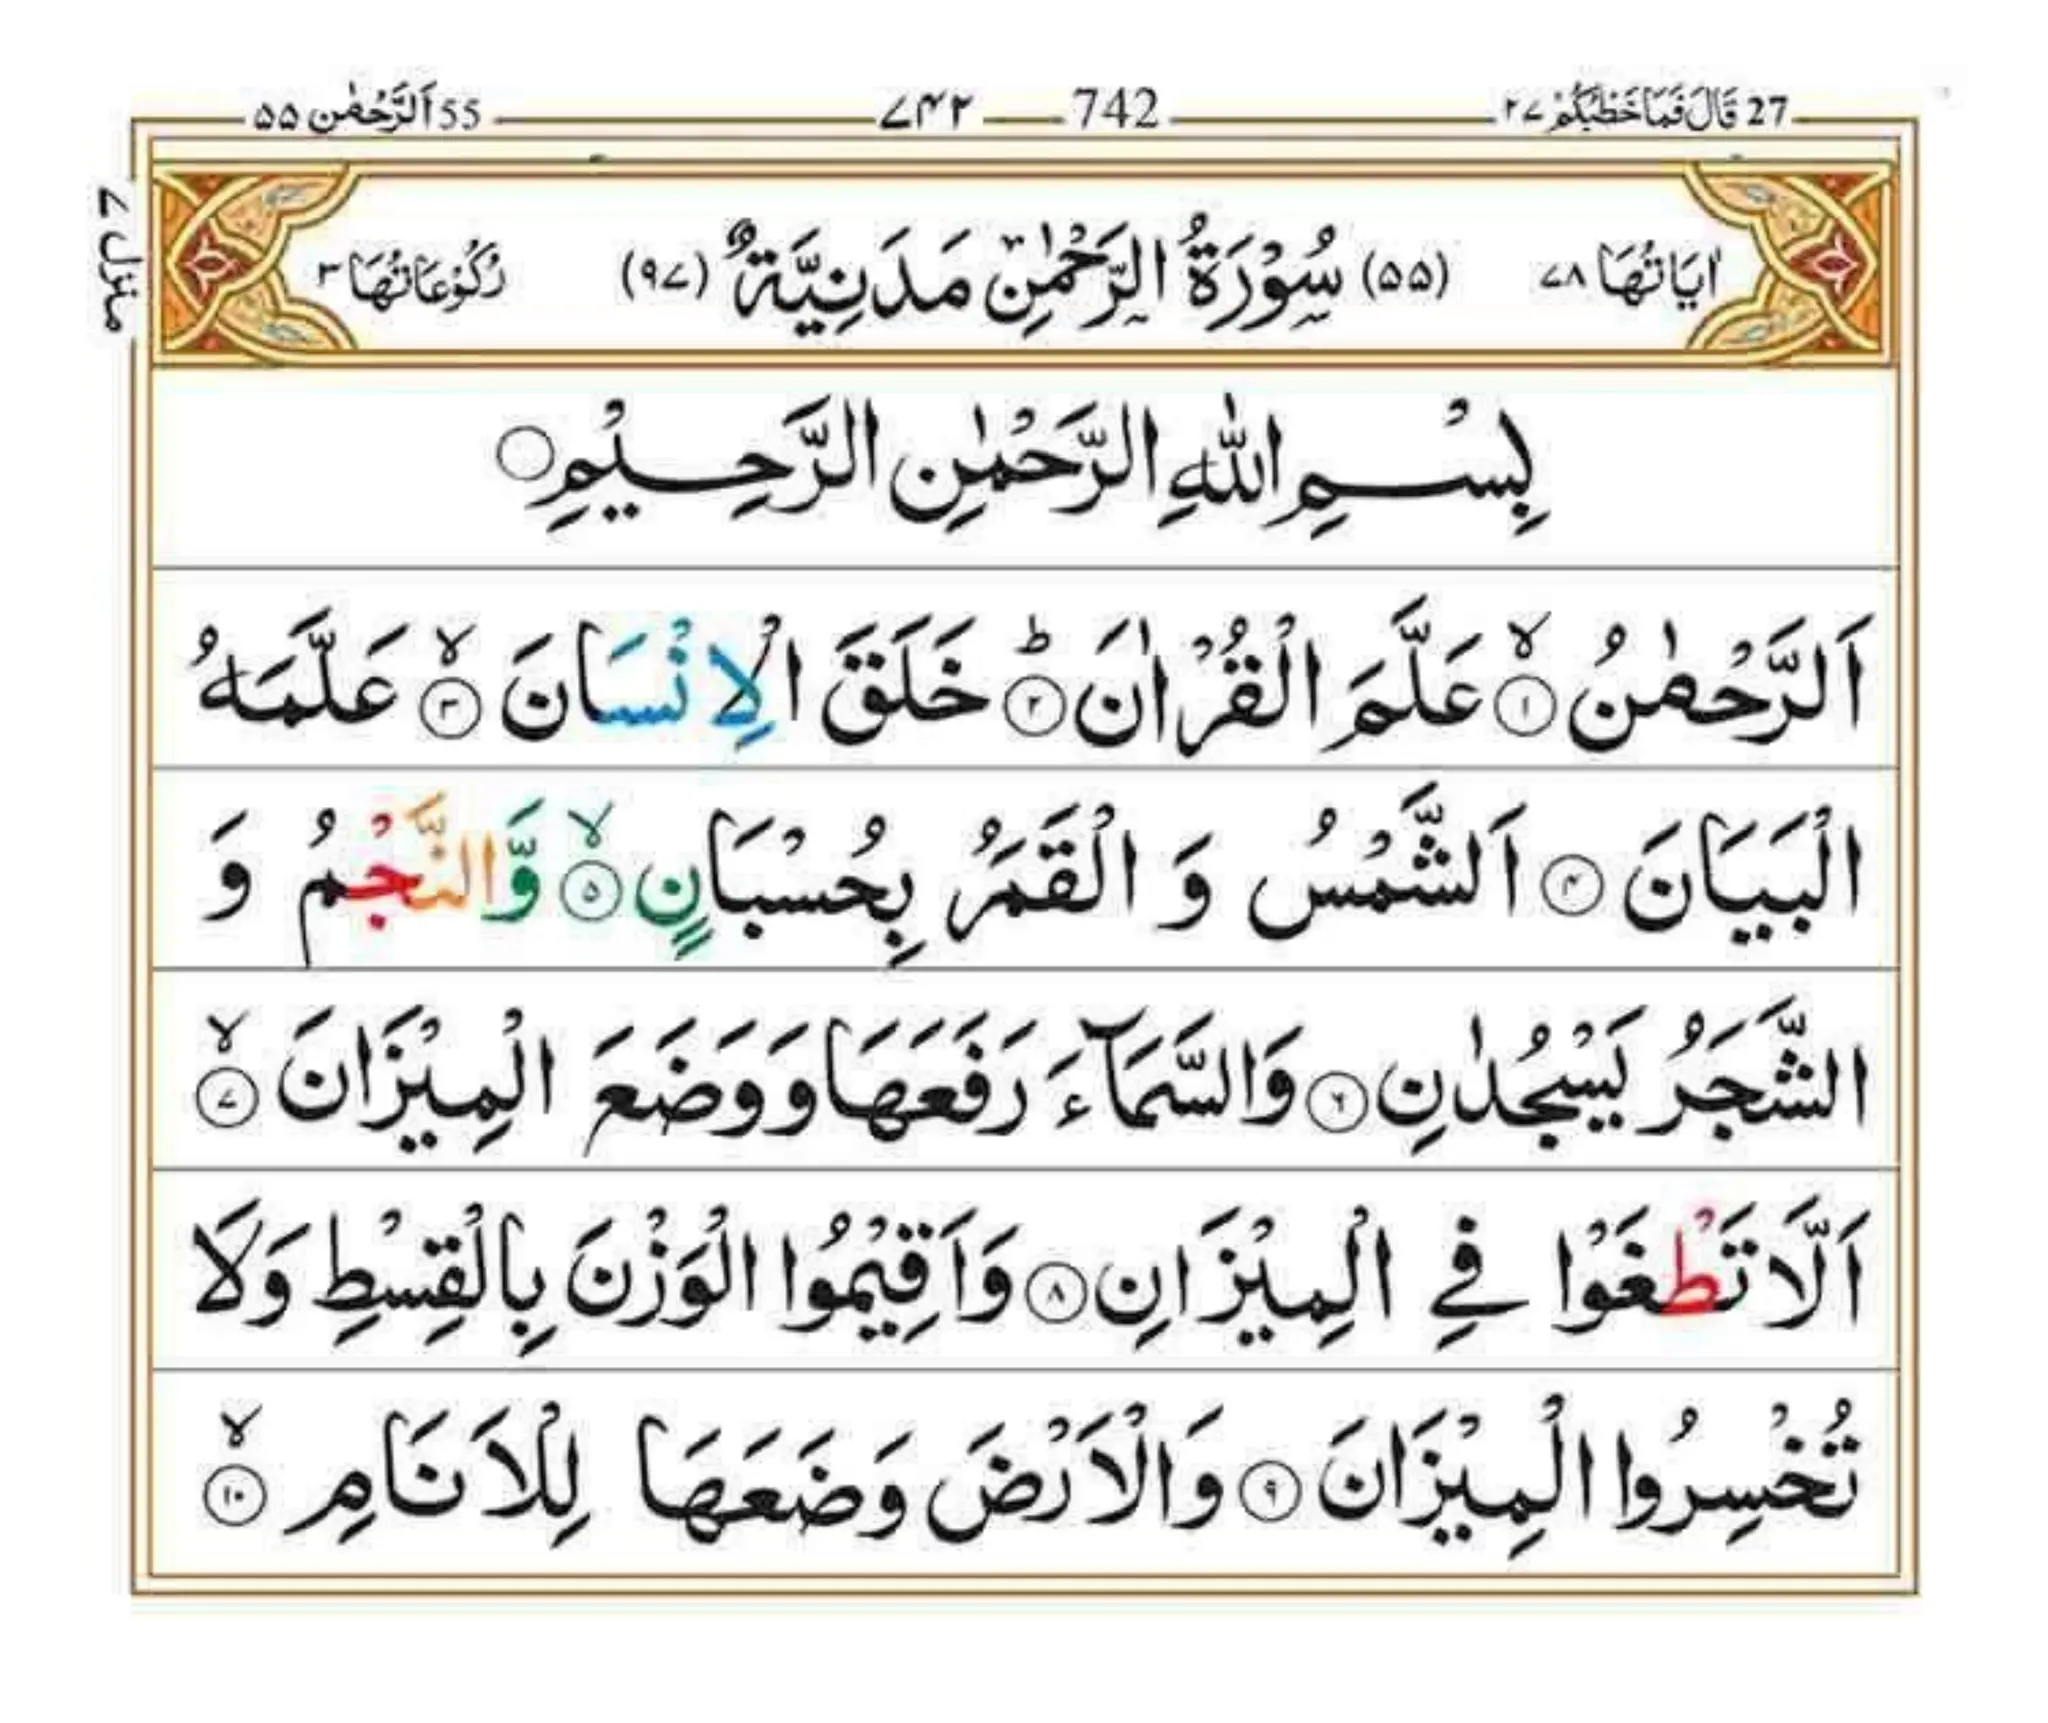 27 قَالَ فَمَا خَطْبُكُمْ ۲۷ 742 ۷۴۲ 55 اَلرَّحْمٰن ۵۵
منزل ۷
اٰيَاتُهَا ۷۸ (۵۵) سُوْرَةُ الرَّحْمٰنِ مَدَنِيَّةٌ (۹۷) رُكُوْعَاتُهَا ۳
بِسْمِ اللّٰهِ الرَّحْمٰنِ الرَّحِيْمِ ○
اَلرَّحْمٰنُ ۙ﴿۱﴾ عَلَّمَ الْقُرْاٰنَ ؕ﴿۲﴾ خَلَقَ الْاِنْسَانَ ۙ﴿۳﴾ عَلَّمَهُ
الْبَيَانَ ﴿۴﴾ اَلشَّمْسُ وَ الْقَمَرُ بِحُسْبَانٍ ۙ﴿۵﴾ وَّالنَّجْمُ وَ
الشَّجَرُ يَسْجُدٰنِ ﴿۶﴾ وَالسَّمَآءَ رَفَعَهَا وَوَضَعَ الْمِيْزَانَ ۙ﴿۷﴾
اَلَّا تَطْغَوْا فِي الْمِيْزَانِ ﴿۸﴾ وَاَقِيْمُوا الْوَزْنَ بِالْقِسْطِ وَلَا
تُخْسِرُوا الْمِيْزَانَ ﴿۹﴾ وَالْاَرْضَ وَضَعَهَا لِلْاَنَامِ ۙ﴿۱۰﴾